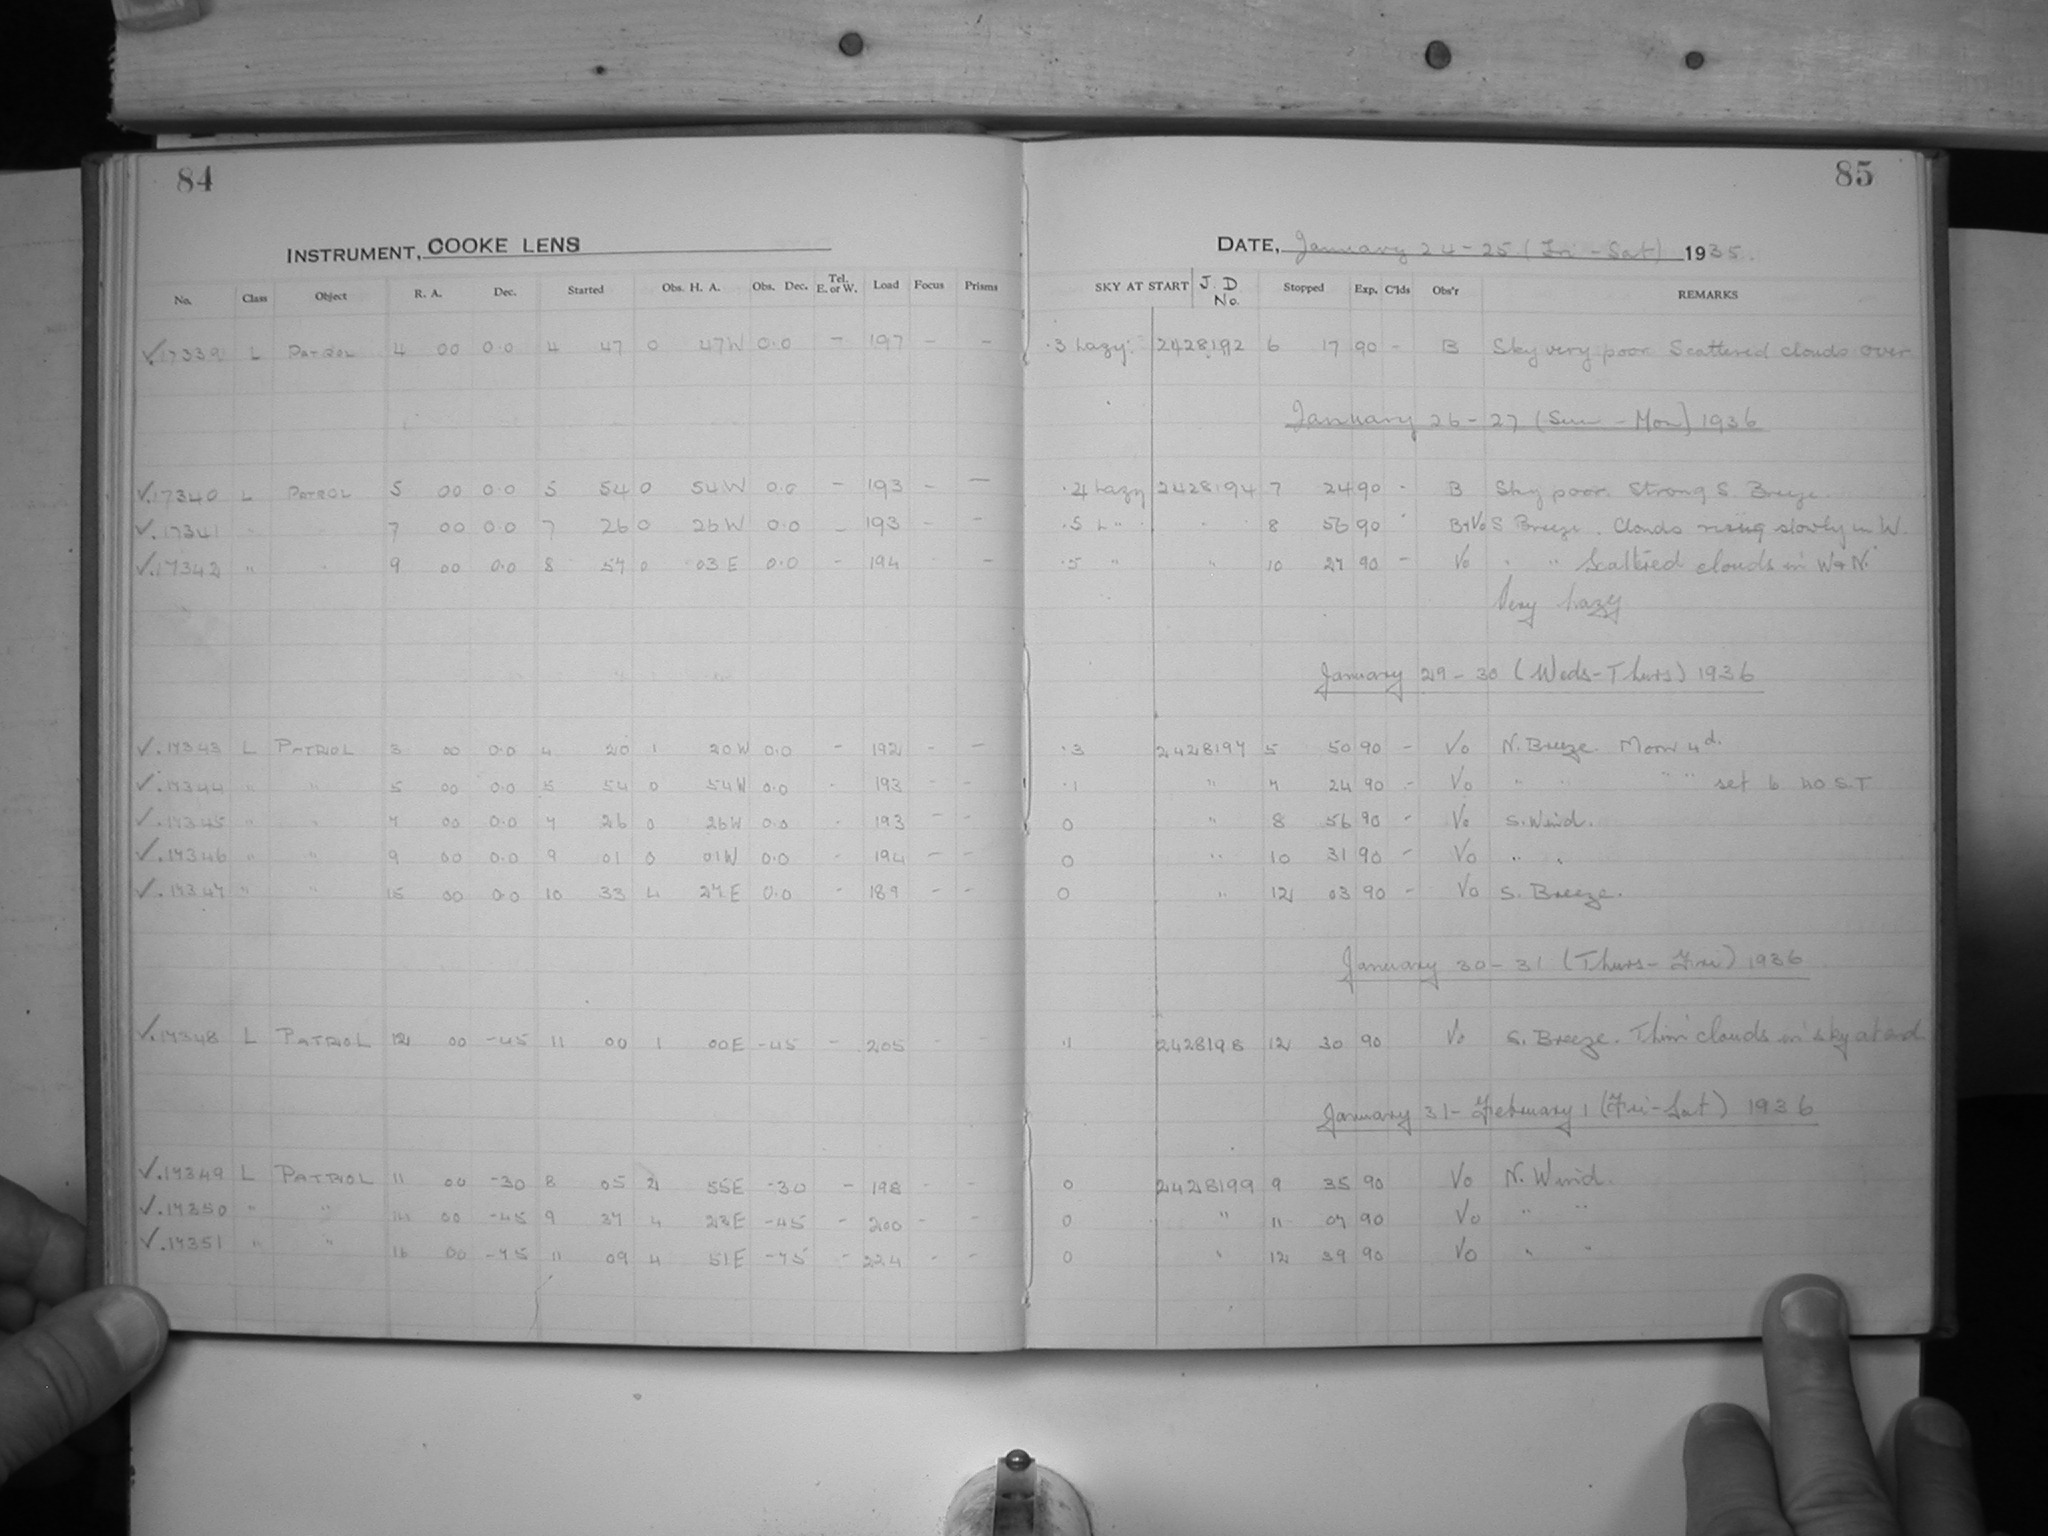 84
85
INSTRUMENT, COOKE LENS
DATE, January 24-25 (Fri - Sat) 1935.
No. Class Object R. A. Dec. Started Obs. H. A. Obs. Dec. Tel. E. or W. Load Focus Prisms SKY AT START J. D. No. Stopped Exp. C'lds Obs'r REMARKS
✓.17339 L PATROL 4 00 0.0 4 47 0 47W 0.0 - 197 - - .3 hazy. 2428192 6 17 90 - B Sky very poor Scattered clouds over
January 26-27 (Sun - Mon) 1936
✓.17340 L PATROL 5 00 0.0 5 54 0 54W 0.0 - 193 - - .4 hazy 2428194 7 24 90 - B Sky poor. Strong S. Breeze
✓.17341 " " 7 00 0.0 7 26 0 26W 0.0 - 193 - - .5 h " " 8 56 90 " B+Vo S Breeze. Clouds rising slowly in W.
✓.17342 " " 9 00 0.0 8 57 0 03E 0.0 - 194 - .5 " " 10 27 90 - Vo " " Scattered clouds in W + N.
Very hazy
January 29-30 (Weds-Thurs) 1936
✓.17343 L PATROL 3 00 0.0 4 20 1 20W 0.0 - 192 - - .3 2428197 5 50 90 - Vo N. Breeze. Moon 4d.
✓.17344 " " 5 00 0.0 5 54 0 54W 0.0 - 193 - - .1 " 7 24 90 - Vo " " " " set 6 40 S.T
✓.17345 " " 7 00 0.0 7 26 0 26W 0.0 - 193 - - 0 " 8 56 90 - Vo S. Wind.
✓.17346 " " 9 00 0.0 9 01 0 01W 0.0 - 194 - - 0 " 10 31 90 - Vo " "
✓.17347 " " 15 00 0.0 10 33 4 27E 0.0 - 189 - - 0 " 12 03 90 - Vo S. Breeze.
January 30-31 (Thurs-Fri) 1936
✓.17348 L PATROL 12 00 -45 11 00 1 00E -45 - 205 - - .1 2428198 12 30 90 Vo S. Breeze. Thin clouds in sky at end
January 31 - February 1 (Fri-Sat) 1936
✓.17349 L PATROL 11 00 -30 8 05 2 55E -30 - 198 - - 0 2428199 9 35 90 Vo N. Wind.
✓.17350 " " 00 -45 9 37 4 23E -45 - 200 - - 0 " 11 07 90 Vo " "
✓.17351 " " 16 00 -75 11 09 4 51E -75 - 224 - - 0 " 12 39 90 Vo " "